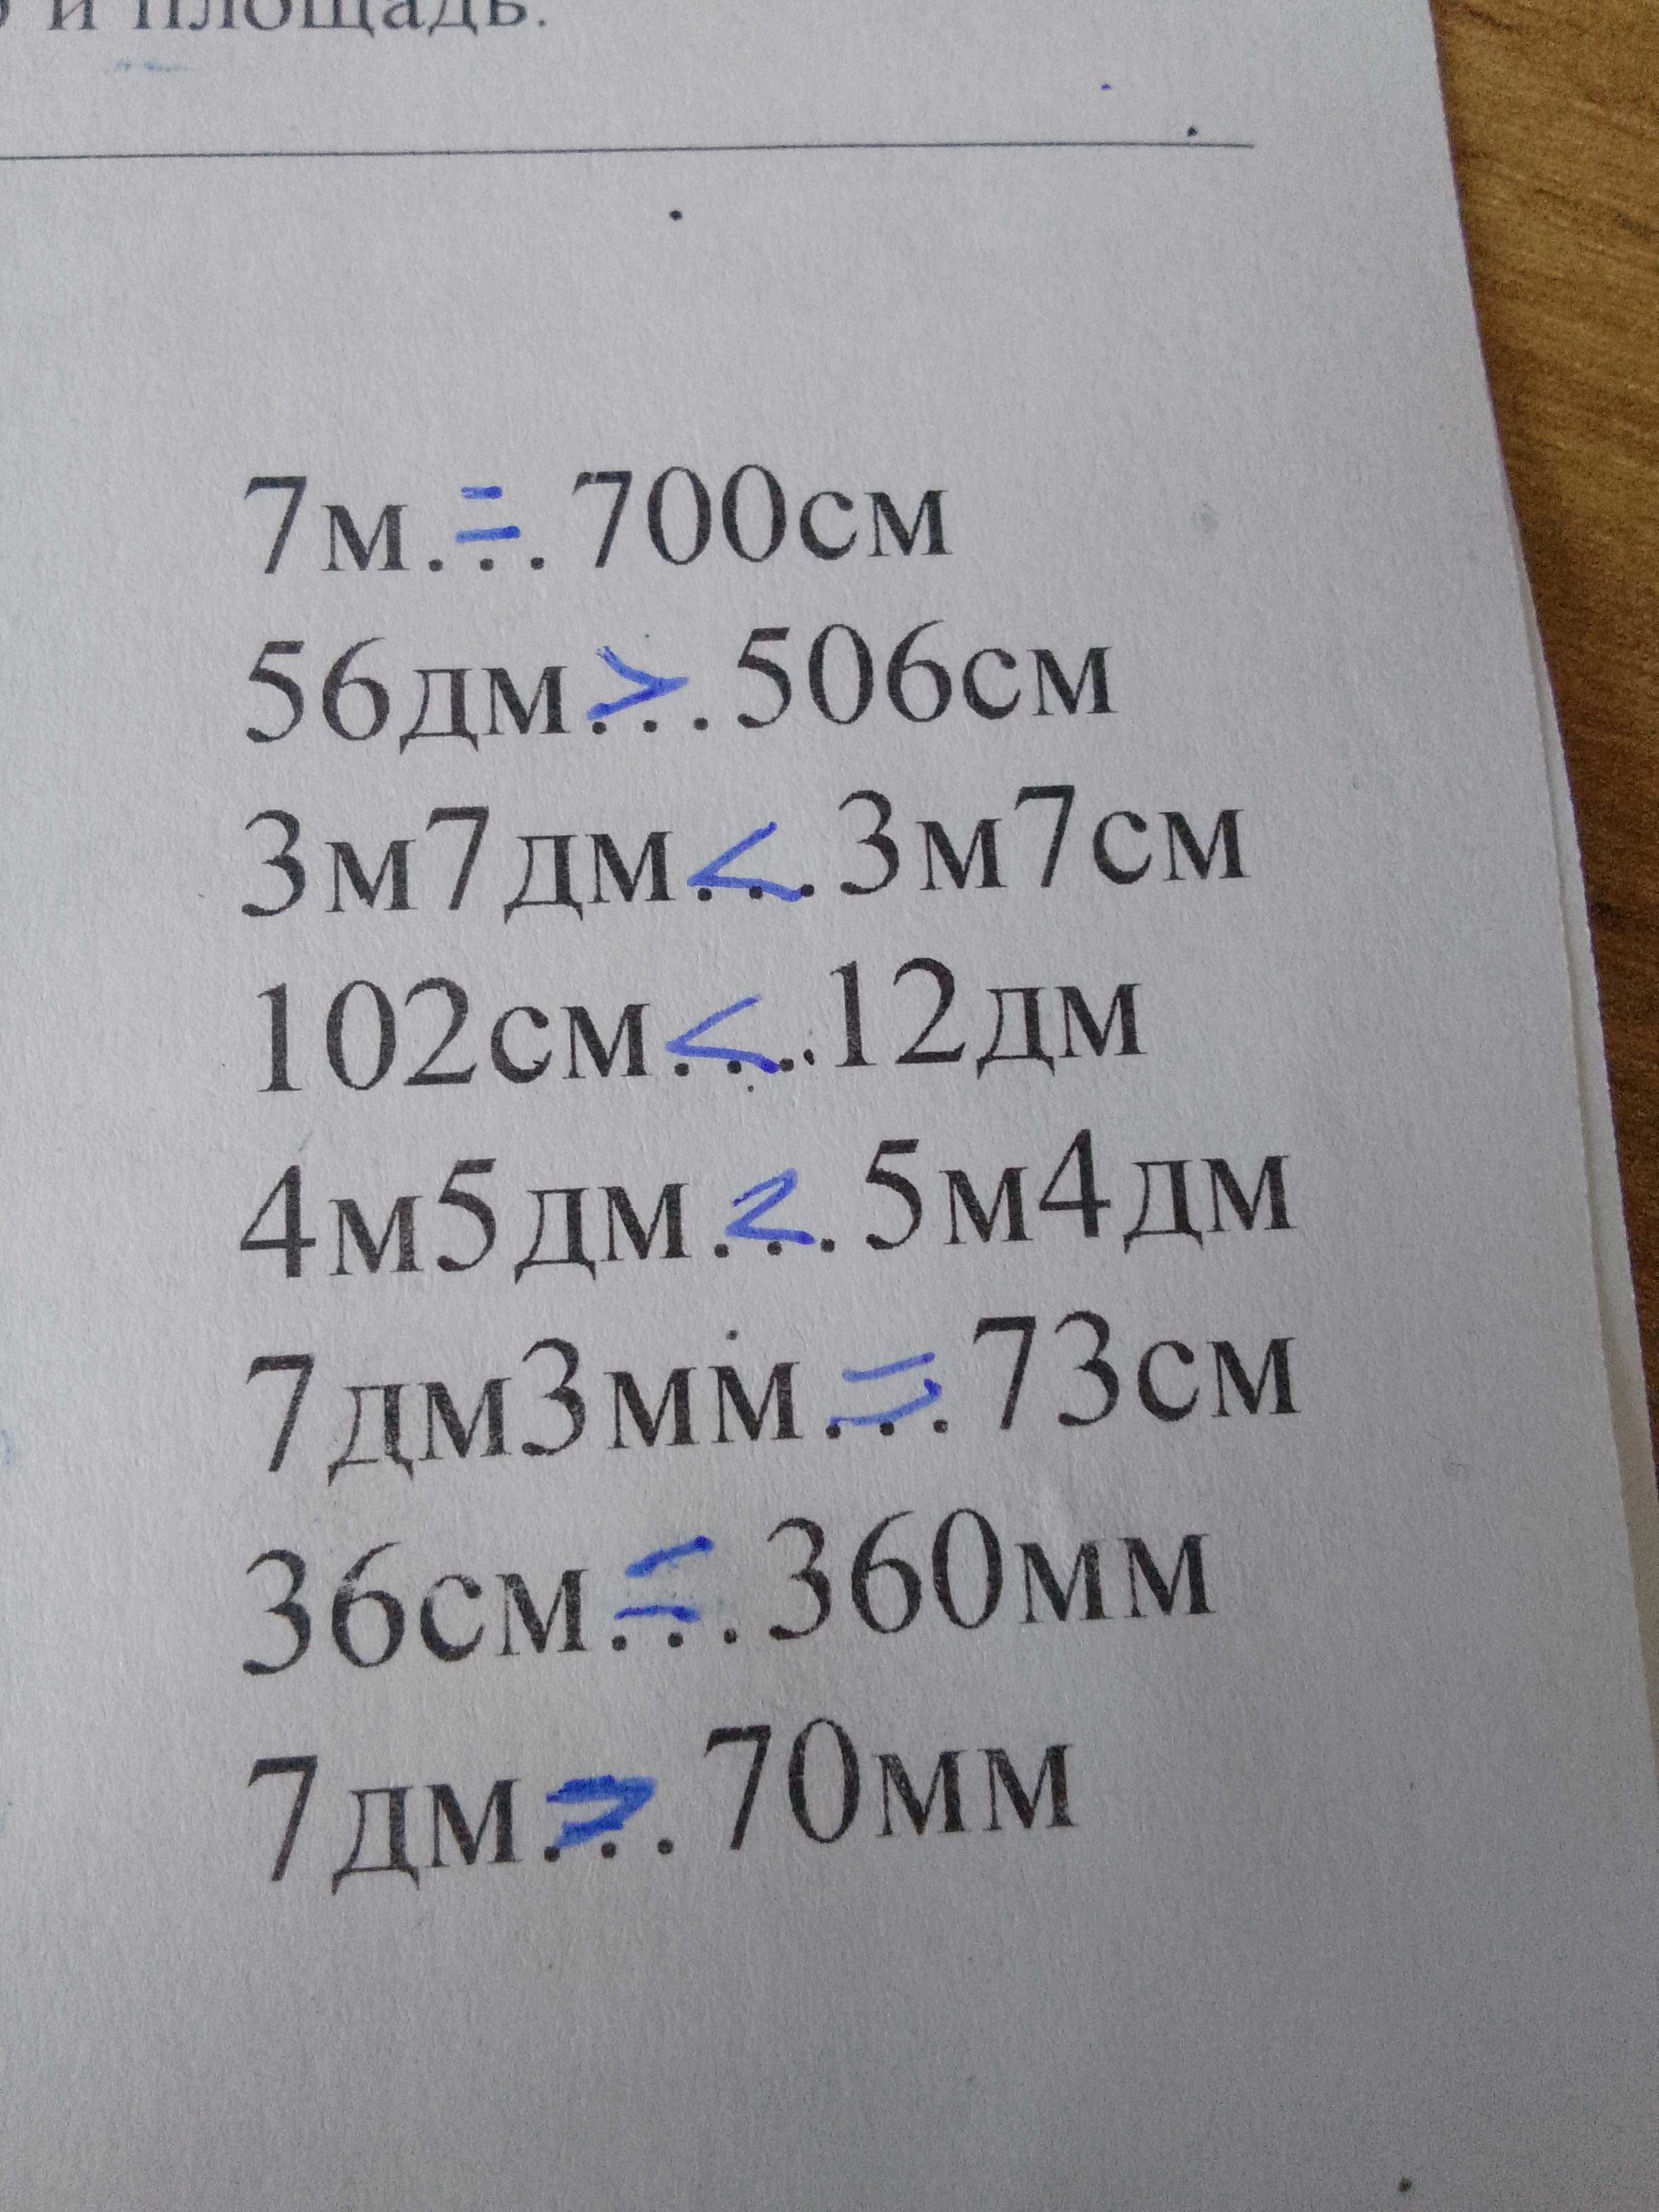 и площадь.
7м.=.. 700см
56дм>...506см
3м7дм<...3м7см
102см<....12дм
4м5дм.<..5м4дм
7дм3мм=...73см
36см=...360мм
7дм>...70мм